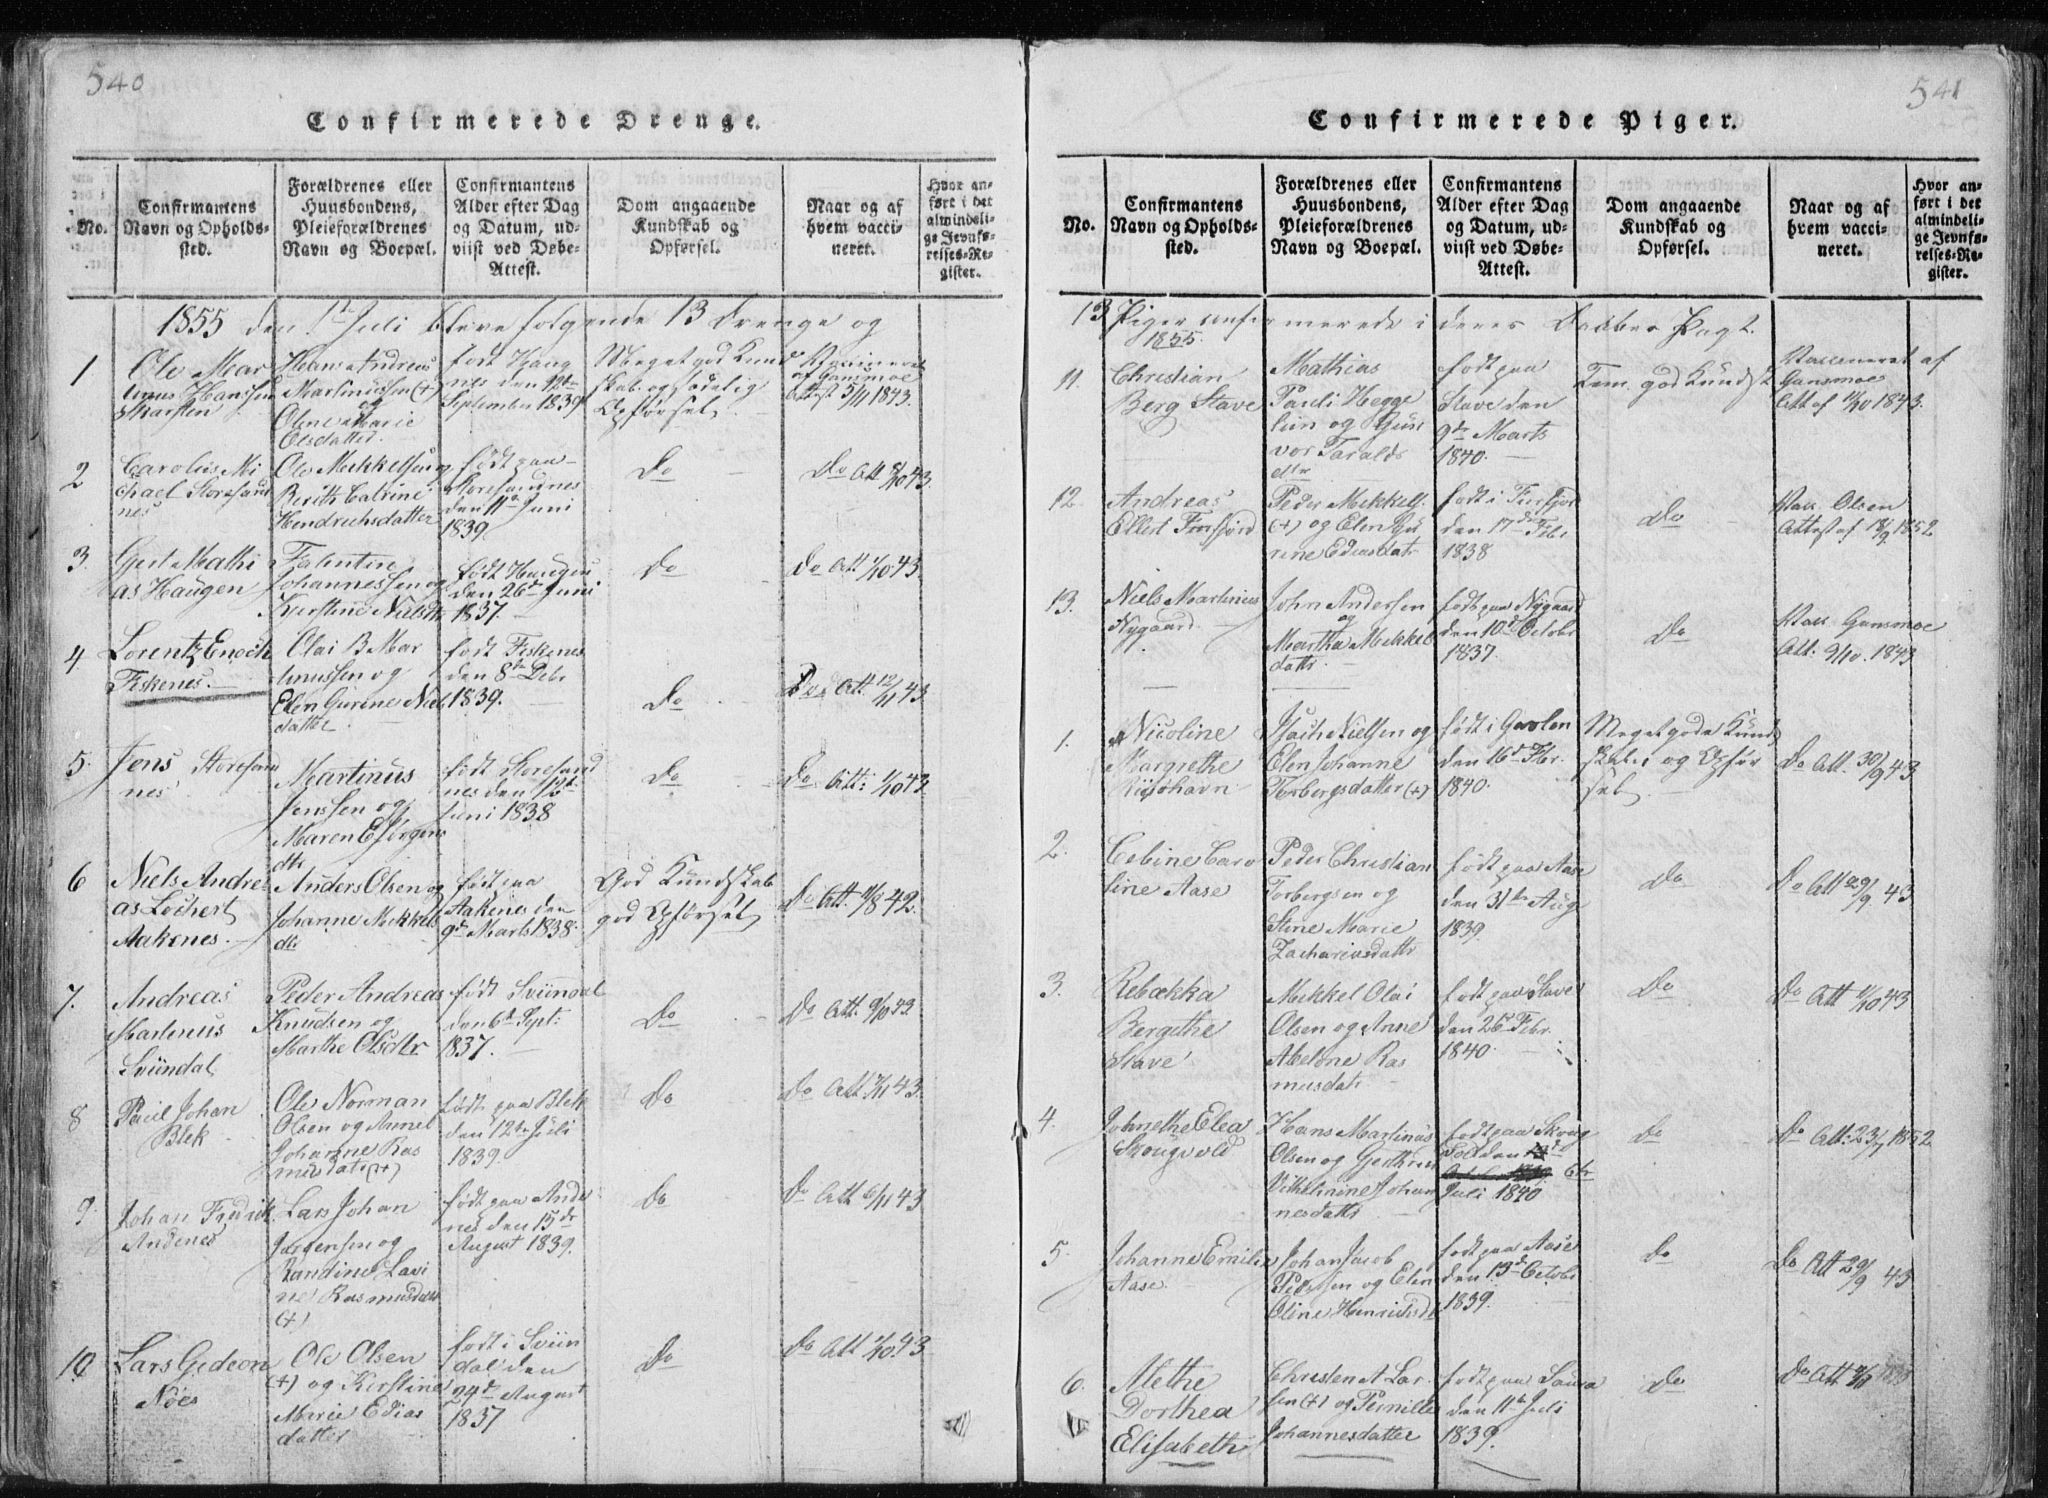 540
Confirmerede Drenge.
No.
Confirmantens
Navn og Opholds-
sted.
Forældrenes eller
Huusbondens,
Pleieforældrenes
Navn og Boepæl.
Confirmantens
Alder efter Dag
og Datum, ud-
viist ved Døbe-
Attest.
Dom angaaende
Kundskab og
Opførsel.
Naar og af
hvem vacci-
neret.
Hvor an-
ført i det
almindeli-
ge Jevnfø-
relses-Re-
gister.
1855 den 1te Juli bleve følgende 13 Drenge og
1
Ole Mar
tinus Hanssen
Hans Andreas
Martinussen (+)
og
Oline Marie
Olsdatter
født Haug
nes den 12te
September 1839
Meget god Kund
skab og sædelig
Opførsel
Attest 5/11 1843.
2
Carolus Mi
chael Storesand
nes
Ole Mikkelsen og
Berith Catrine
Hendrichsdatter
født paa
Storesandnes
den 11te Juni
1839
Do
Do Att 8/10 43.
3.
Gert Mathi
as Haugen
Falentin
Johannessen og
Kirstine Nielsdtr
født Haugen
den 26de Juni
1837.
Do
Do Att 1/10 43.
4
Lorentz Enoch
Fiskenes.
Olai B Mar
tinussen og
Elen Gurine Niels
datter
født Fiskenes
den 8de Febr
1839.
Do
Do Att. 12/11 43
5.
Jens Storesand
nes
Martinus
Jenssen og
Maren E Jörgens
dtr
født Storesand
nes den 12te
Juni 1838
Do
Do Att: 1/10 43
6
Niels Andre
as Lochert
Aakenes.
Anders Olsen og
Johanne Mikkels
dtr
født paa
Aakenes den
9de Marts 1838.
God Kundskab
god Opførsel
Do Att. 11/8 42.
7.
Andreas
Martinus
Svündal
Peder Andreas
Knudsen og
Marthe Olsdtr
født Svündal
den 6te Sept:
1837.
Do
Do Att: 9/10 43
8
Paul Johan
Blek
Ole Norman
Olsen og Annel
Johanne Ras
musdatr (+)
født paa Blek
den 12te Juli
1839.
Do
Do Att 7/11 43.
9.
Johan Fredrik
Andenes
Lars Johan
Jørgensen og
Randine Lavi
ne Rasmusdatr
(+)
født paa Ande
nes den 15de
August 1839.
Do
Do Att 6/11 43
10
Lars Gedeon
Nöes
Ole Olsen
(+) og Kirstine
Marie Edias
datter
født i Svün
dal den
24de August
1837
Do
Do Att 1/10 43
541
Confirmerede Piger.
No.
Confirmantens
Navn og Opholds-
sted.
Forældrenes eller
Huusbondens,
Pleieforældrenes
Navn og Boepæl.
Confirmantens
Alder efter Dag
og Datum, ud-
viist ved Døbe-
Attest.
Dom angaaende
Kundskab og
Opførsel.
Naar og af
hvem vacci-
neret.
Hvor an-
ført i det
almindeli-
ge Jevnfø-
relses-Re-
gister.
13 Piger confirmerede i deres Daabes Pagt.
1855.
11.
Christian
Berg Stave
Mathias
Pauli Hegge
lün og Gun
vor Taralds
dtr
født paa
Stave den
9de Marts
1840.
Tem. god Kundsk
Vaccineret af
Gansmoe
Att af 11/10 1843.
12.
Andreas
Ellert Finfjord
Peder Mikkels.
(+) og Elen Gu
rine Ediasdatr
født i Finfjord
den 17de Febr
1838
Do
Vacc. Olsen
Attest af 18/9 1852
13.
Niels Martinius
Nygaard.
John Andersen
og
Martha Mikkels
datr
født paa Nygaard
den 10de Octobr
1837.
Do
Vacc Gansmoe
Att. 9/10. 1843
1.
Nicoline
Margrethe
Isach Nielsen og
Elen Johanne
Torbergsdatter (+)
født i
den 16de Febr.
1840.
Meget gode Kund
skaber og Opfør
sel
Do Att. 30/9 43
2.
Cebine Caro
line Aase
Peder Christian
Torbergsen og
Stine Marie
Zachariasdatr
født paa Aase
den 31te Aug
1839.
Do
Do Att 29/9 43
3.
Rebækka
Bergithe
Stave
Mikkel Olai
Olsen og Anne
Abelone Ras
musdatr
født paa Stave
den 26de Febr.
1840.
Do
Do Att 1/10 43
4.
Johnethe Elea
Skougvold
Hans Martinus
Olsen og Gertrud
Vilhelmine Johan
nesdatr
født paa Skoug
vold den 6te
Juli 1840
Do
Do Att: 23/7 1852
5.
Johanne Emilie
Aase
Johan Jacob
Pedersen og Elen
Oline Henriksdtr
født paa Aase
den 13de Octobr
1839.
Do
Do Att 29/9 43
6.
Methe
Dorthea
Elisabeth
Christen A Lar
sen (+) og Pernille
Johannesdatter
født paa Saura
den 11te Juli
1839.
Do
Do Att